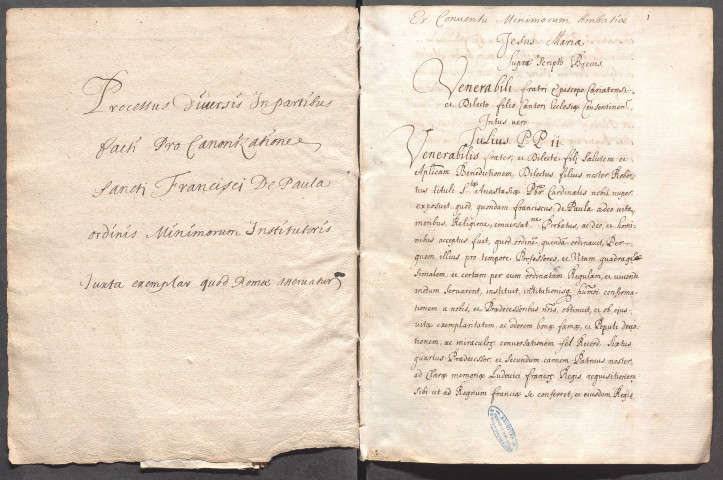 Processus Diversis In partibus
facti Pro Canonizatione
Sancti Francisci De Paula
ordinis Minimorum Institutoris
Juxta exemplar quod Romæ asservatur
Ex Conventu Minimorum Ambasiæ
1
Jesus Maria
supra scripto Brevis
Venerabili fratri Episcopo Cariatensi
et Dilecto filio Cantori Ecclesiæ Consentinen
Intus vero
Julius P.P. II
Venerabilis frater, et Dilecte fili Salutem et
Aplicam Benedictionem, Dilectus filius noster Rober
tus tituli S. Anastasiæ Cardinalis nobis nuper
exposuit, quod quondam franciscus de Paula adeo vita,
moribus, Religione, conversatne Probatus, ac deo, et homi
nibus acceptus fuit, quod ordinē quendā ordinavit, Per
quem, illius pro tempore Professores, et Vitam quadrage
simalem, et certam per eum ordinatam Regulam, et vivendi
modum servarent, instituit, institutionisq confirma
tionem a nobis, et Prædecessoribus nris, obtinuit, et ob ejus
vitæ exemplaritatem, ac odorem bonæ famæ, et Populi devo
tionem, ac miraculoz conversationem fel Record Sixtus
quartus Prædecessor, et secundum carnem Patruus noster,
ad Claræ memoriæ Ludovici francoz Regis requisitionem
sibi ut ad Regnum franciæ se conferret, et eiusdem Regis